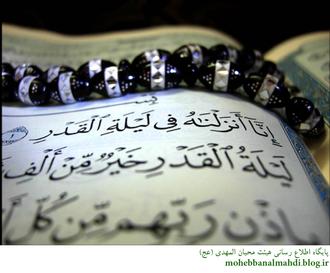 إِنَّا أَنزَلْنَاهُ فِي لَيْلَةِ الْقَدْرِ
لَيْلَةُ الْقَدْرِ خَيْرٌ مِّنْ أَلْفِ
بِإِذْنِ رَبِّهِم مِّن كُلِّ
پایگاه اطلاع رسانی هیئت محبان المهدی (عج)
mohebbanalmahdi.blog.ir